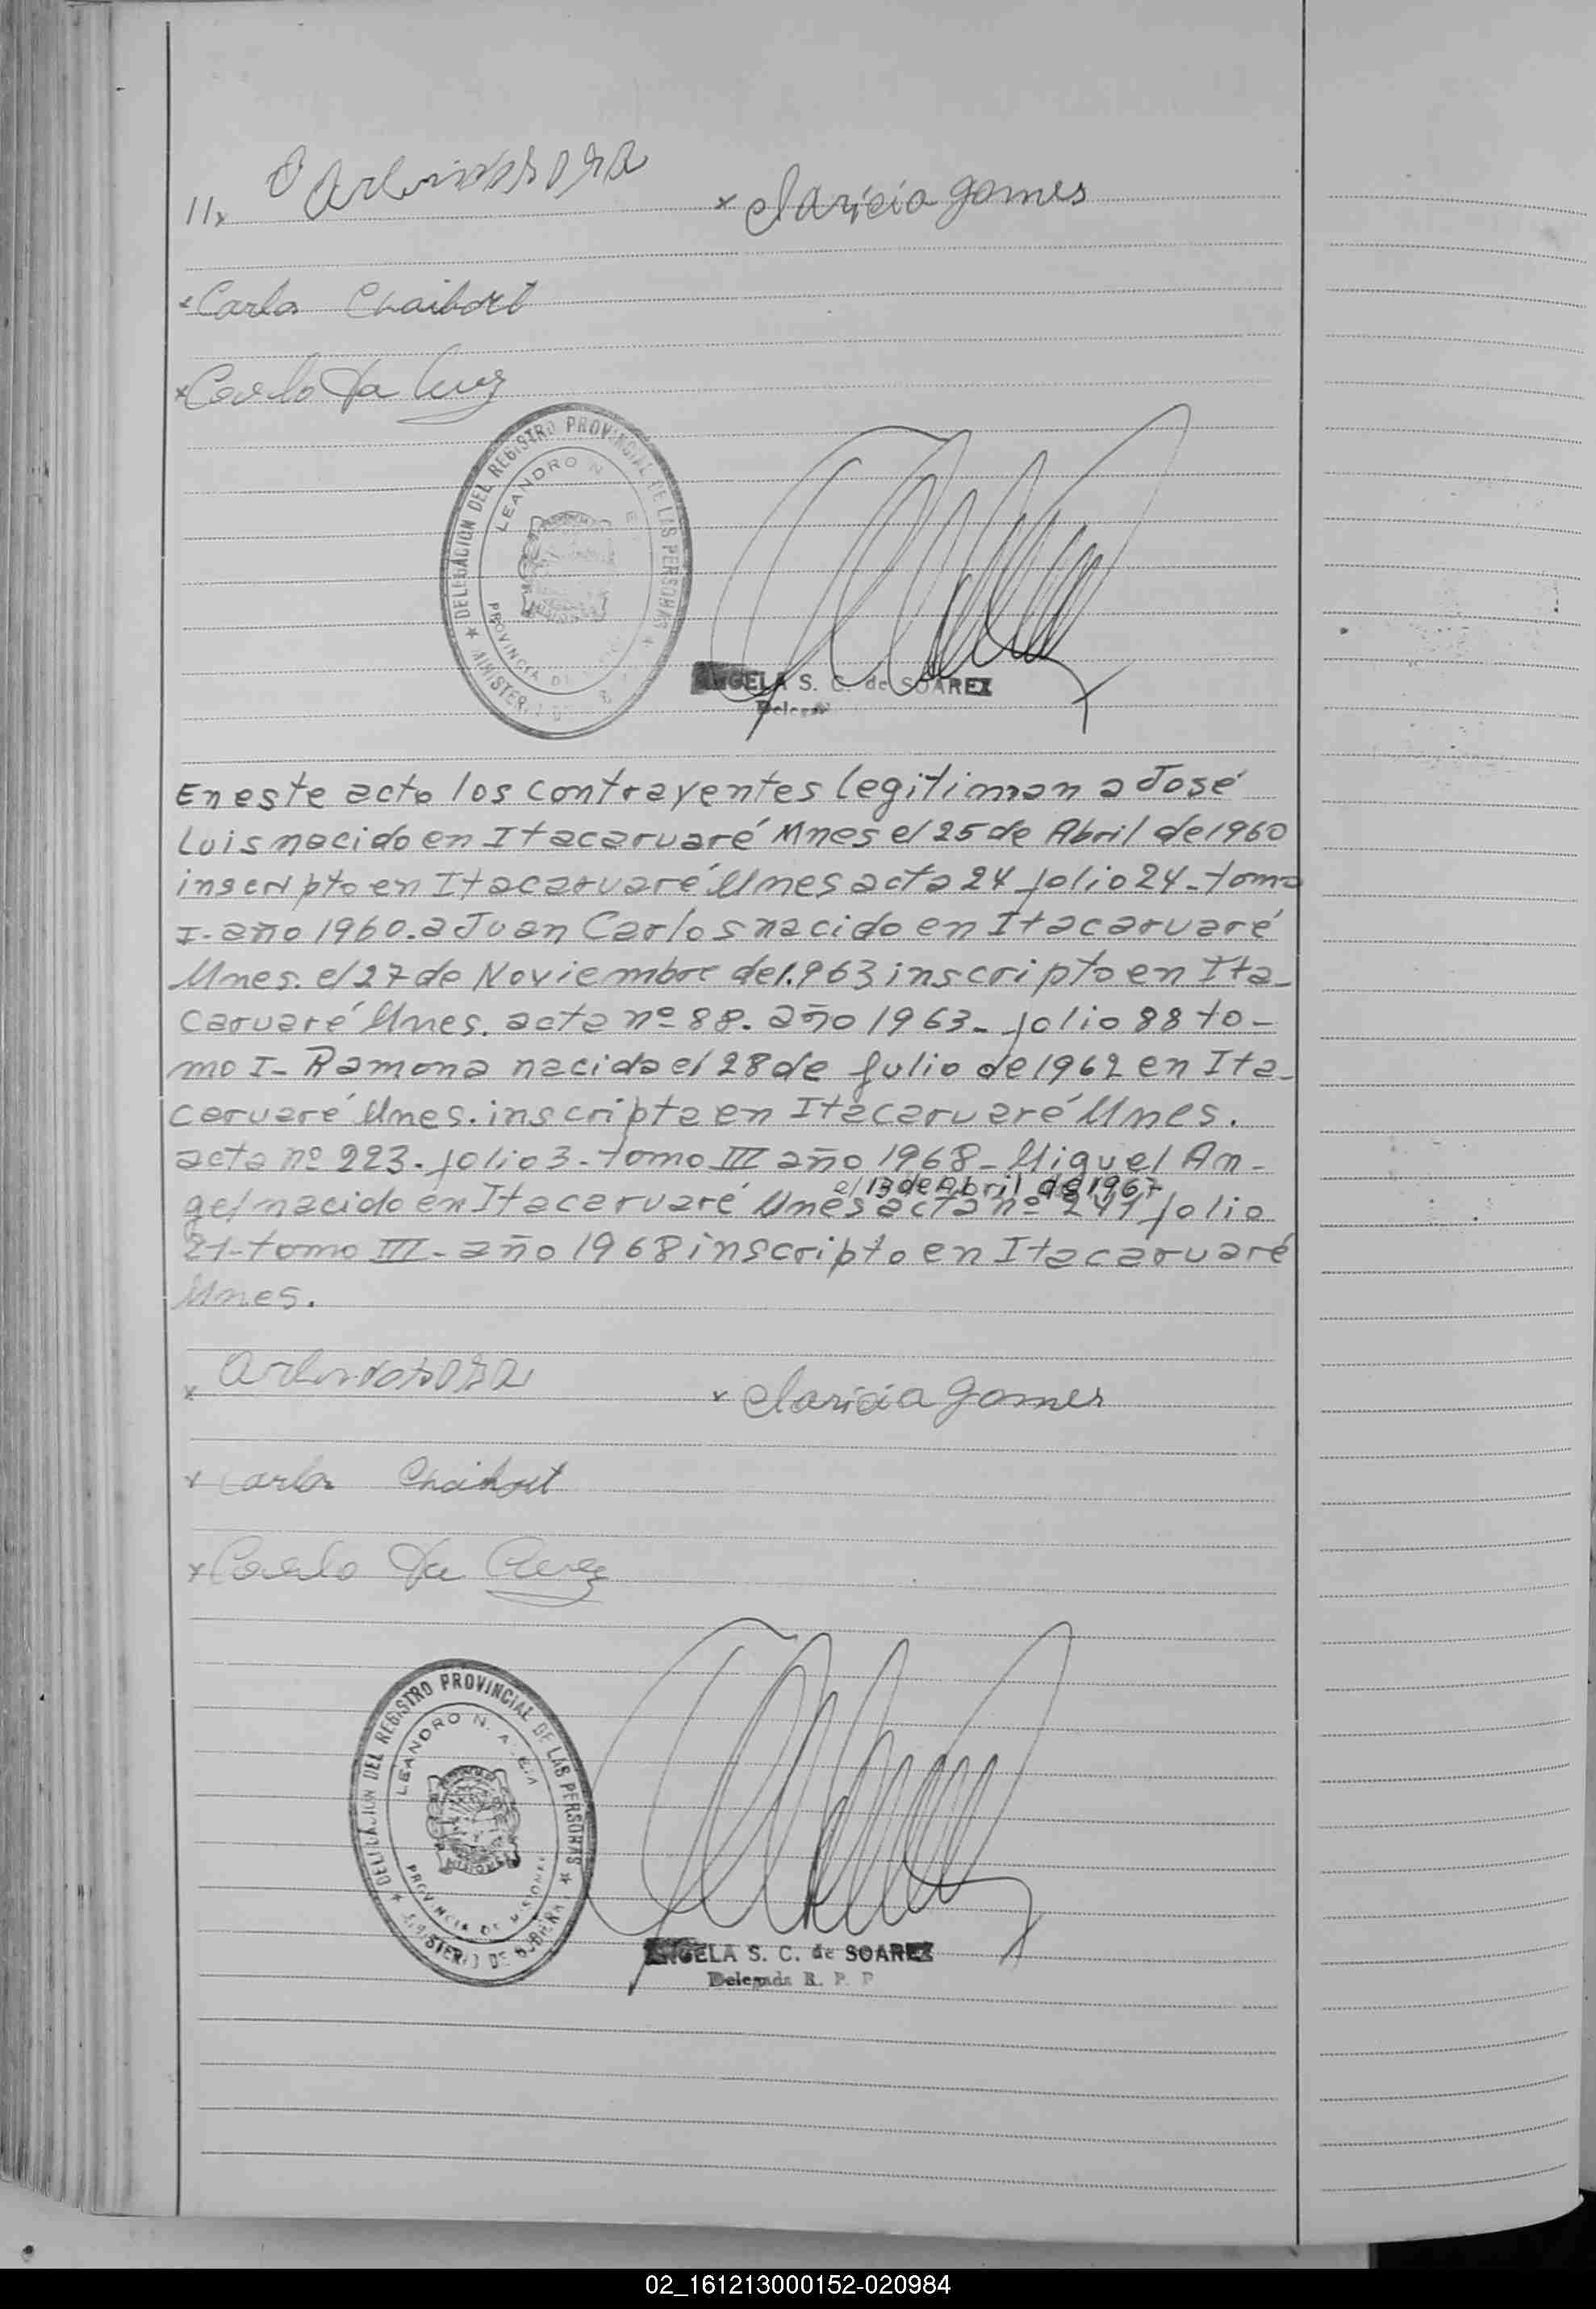 11x x Claricia gomes
x Carlos Chaibort
x Carlo Da Luz
DELEGACION DEL REGISTRO PROVINCIAL DE LAS PERSONAS
LEANDRO N
PROVINCIA DE
ANGELA S. C. de SOAREZ
En este acto los contrayentes legitiman a José
Luis nacido en Itacaruaré Mnes el 25 de Abril de 1960
inscripto en Itacaruaré Mnes acta 24 folio 24 - tomo
I - año 1960. a Juan Carlos nacido en Itacaruaré
Mnes. el 27 de Noviembre de 1.963 inscripto en Ita-
caruaré Mnes. acta nº 88. año 1963 - folio 88 to-
mo I - Ramona nacida el 28 de Julio de 1962 en Ita-
caruaré Mnes. inscripta en Itacaruaré Mnes.
acta nº 223. folio 3 - tomo III año 1968 - Miguel An-
el 13 de Abril de 1967
gel nacido en Itacaruaré Mnes acta nº 241 folio
21 - tomo III - año 1968 inscripto en Itacaruaré
Mnes.
x x Claricia gomes
x Carlos Chaibort
x Carlo Da Luz
DELEGACION DEL REGISTRO PROVINCIAL DE LAS PERSONAS
LEANDRO N. ALEM
PROVINCIA DE MISIONES
MINISTERIO DE GOBIERNO
ANGELA S. C. de SOAREZ
Delegada R. P. P
02_161213000152-020984